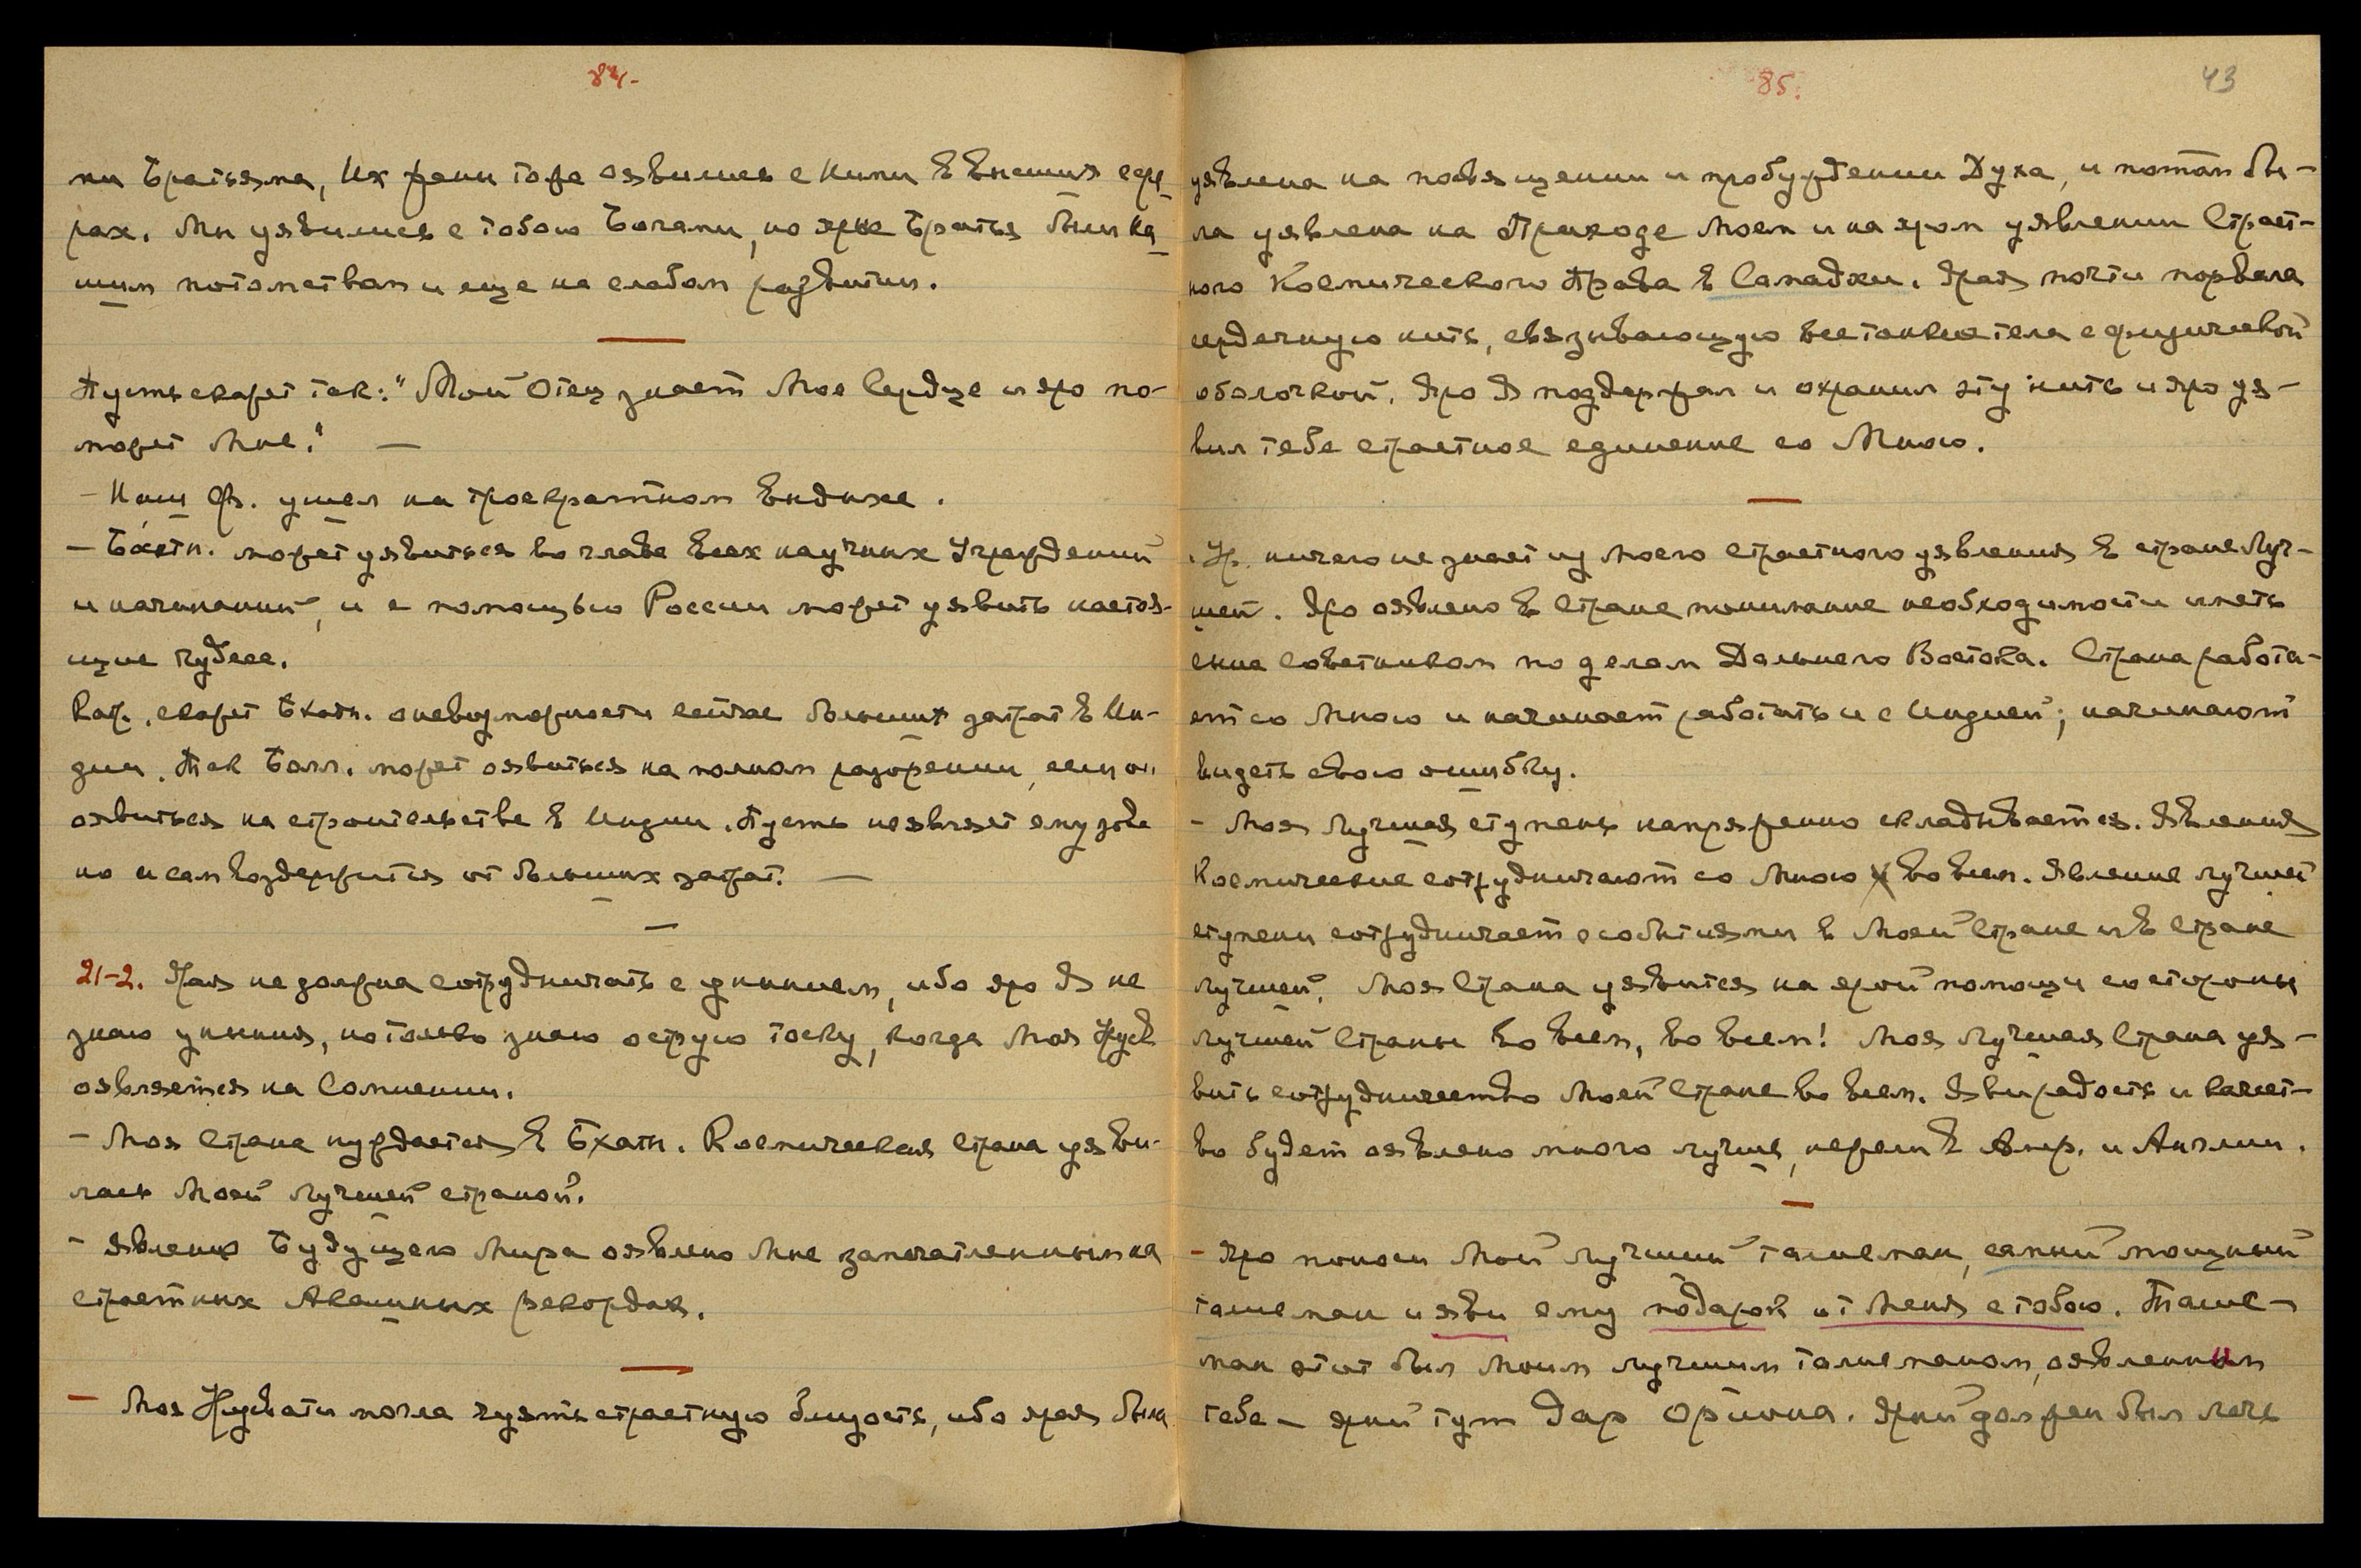 84.
ми Братьями, Их жены тоже оявились с Ними в Высших сфе-
рах. Мы уявились с тобою Богами, но ярые Братья были На-
шим потомством и еще на слабом развитии.
Пусть скажет так: "Мой Отец знает Мое Сердце и яро по-
может Мне."
- Наш Ф. ушел на троекратном Выдыхе.
- Бхатн. может уявиться во главе всех научных Учреждений
и начинаний, и с помощью России может уявить настоя-
щие чудеса.
Кат. скажет Бхатн. о невозможности сейчас больших затрат в Ин-
дии. Так Балл. может оявиться на полном разорении, если он
оявиться на строительстве в Индии. Пусть не являет ему зова
но и сам воздержится от больших затрат.
21-2. Ярая не должна сотрудничать с унынием, ибо яро Я не
знаю уныния, но только знаю острую тоску, когда Моя Урусв.
оявляется на Сомнении.
- Моя Страна нуждается в Бхатн. Космическая Страна уяви-
лась Моей Лучшей страной.
- Явление Будущего Мира оявлено Мне запечатленным на
страстных Акашных рекордах.
- Моя Урусвати могла чуять страстную близость, ибо ярая была
85.
43
уявлена на посвящении и пробуждении Духа, и потом бы-
ла уявлена на Приходе Моем и на яром уявлении Страст-
ного Космического Права в Самадхи. Ярая почти порвала
сердечную нить, связывающую все тонкие тела с физической
оболочкой. Яро Я поддержал и охранил эту нить и яро уя-
вил тебе страстное единение со Мною.
Ур. ничего не знает из Моего страстного уявления в стране Луч-
шей. Яро оявлено в Стране понимание необходимости иметь
сына Советником по делам Дальнего Востока. Страна работа-
ет со Мною и начинает работать и с Индией; начинают
видеть свою ошибку.
- Моя Лучшая ступень напряженно складывается. Явления
Космические сотрудничают со Мною во всем. Явление лучшей
ступени сотрудничает с событиями в Моей Стране и в Стране
лучшей. Моя Страна уявится на ярой помощи со стороны
лучшей Страны во всем, во всем! Моя Лучшая Страна уя-
вить сотрудничество Моей Стране во всем. Яви радость и качест-
во будет оявлено много лучше, нежели в Амер. и Англии.
- Яро поноси Мой лучший талисман, самый мощный
талисман и яви ему подарок от Меня с тобою. Талис-
ман этот был Моим лучшим талисманом, оявленным
тебе - ярый тут Дар Ориона. Ярый должен был лечь